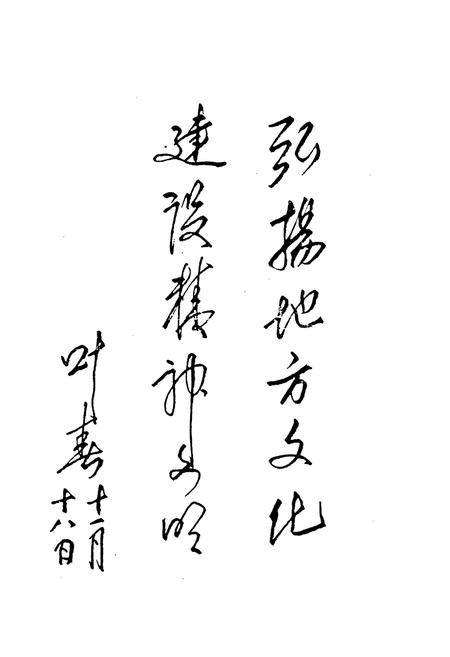 弘揚地方文化
建設精神文明
叶春
十一月
十八日